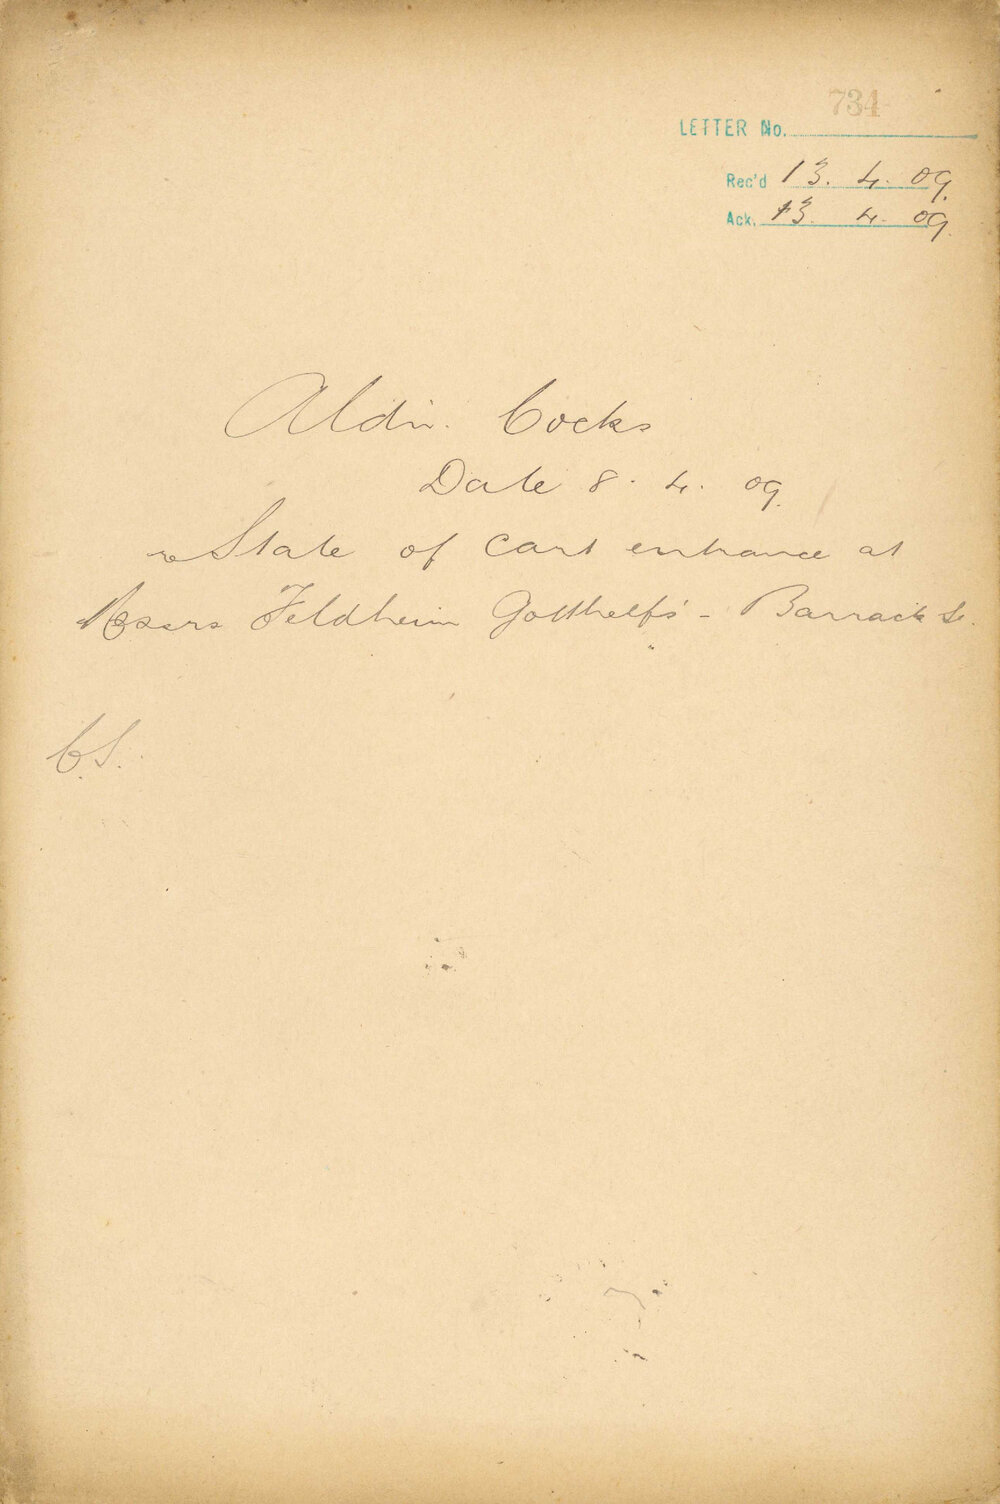 734
LETTER No.
Rec'd 13. 4. 09.
Ack. 13. 4. 09.
Aldn. Cocks
Date 8. 4. 09.
re State of cart entrance at
Messrs Feldheim Gotthelfs' - Barrack St.
C.S.